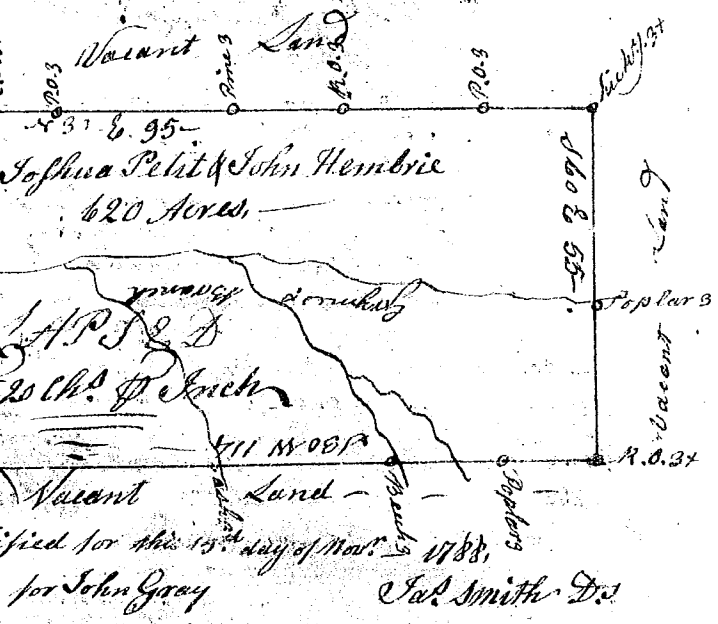 Vacant Land
P.O.3
Pine 3
R.O.3
P.O.3
E. 95-
Joshua Petit & John Hembrie
620 Acres,
S 60 E 55-
Vacant Land
Poplar 3
Branch
LAPSED
20 Chs. ⅌ Inch
114
R.O.3x
Vacant Land
Beech 3
Poplar 3
ified for this 15th day of Novr. 1788,
for John Gray
Jas. Smith D.S